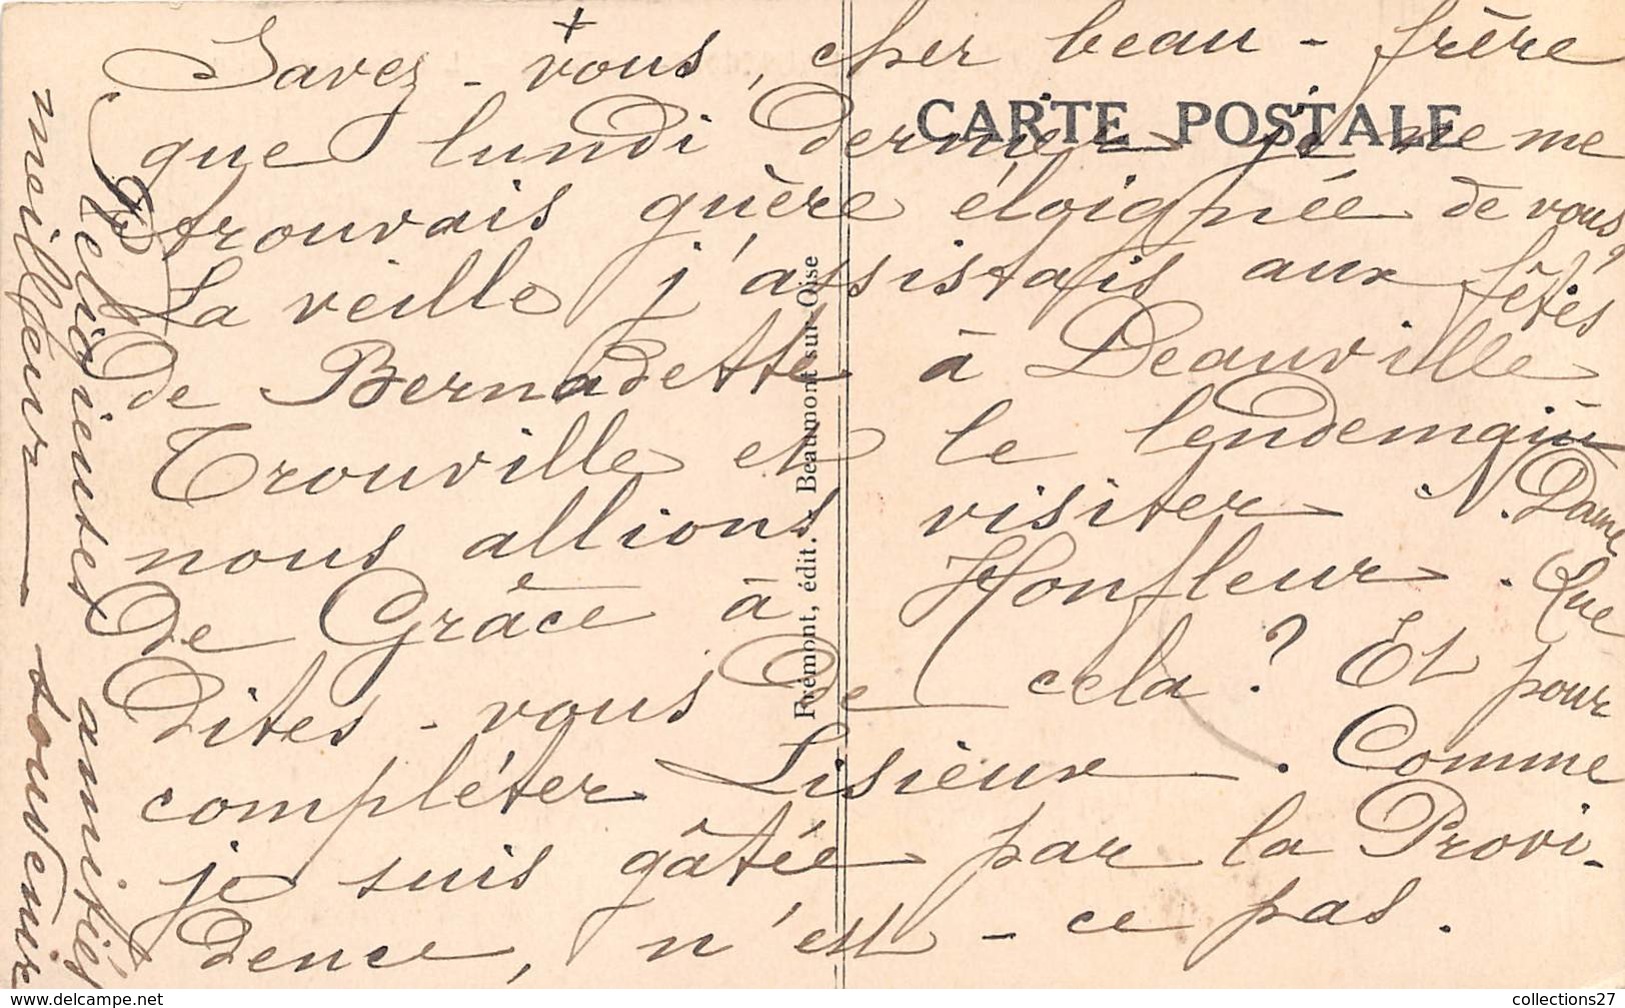 +
Savez-vous, cher beau-frère
CARTE POSTALE
que lundi dernier je ne me
trouvais guère éloignée de vous?
La veille j'assistais aux fêtes
de Bernadette à Deauville
Trouville et le lendemain
nous allions visiter N. Dame
de Grâce à Honfleur. Que
dites-vous de cela? Et pour
compléter Lisieux. Comme
je suis gâtée par la Provi-
dence, n'est-ce pas.
Religieuses amitiés
meilleur souvenir
Frémont, édit. - Beaumont-sur-Oise
collections27